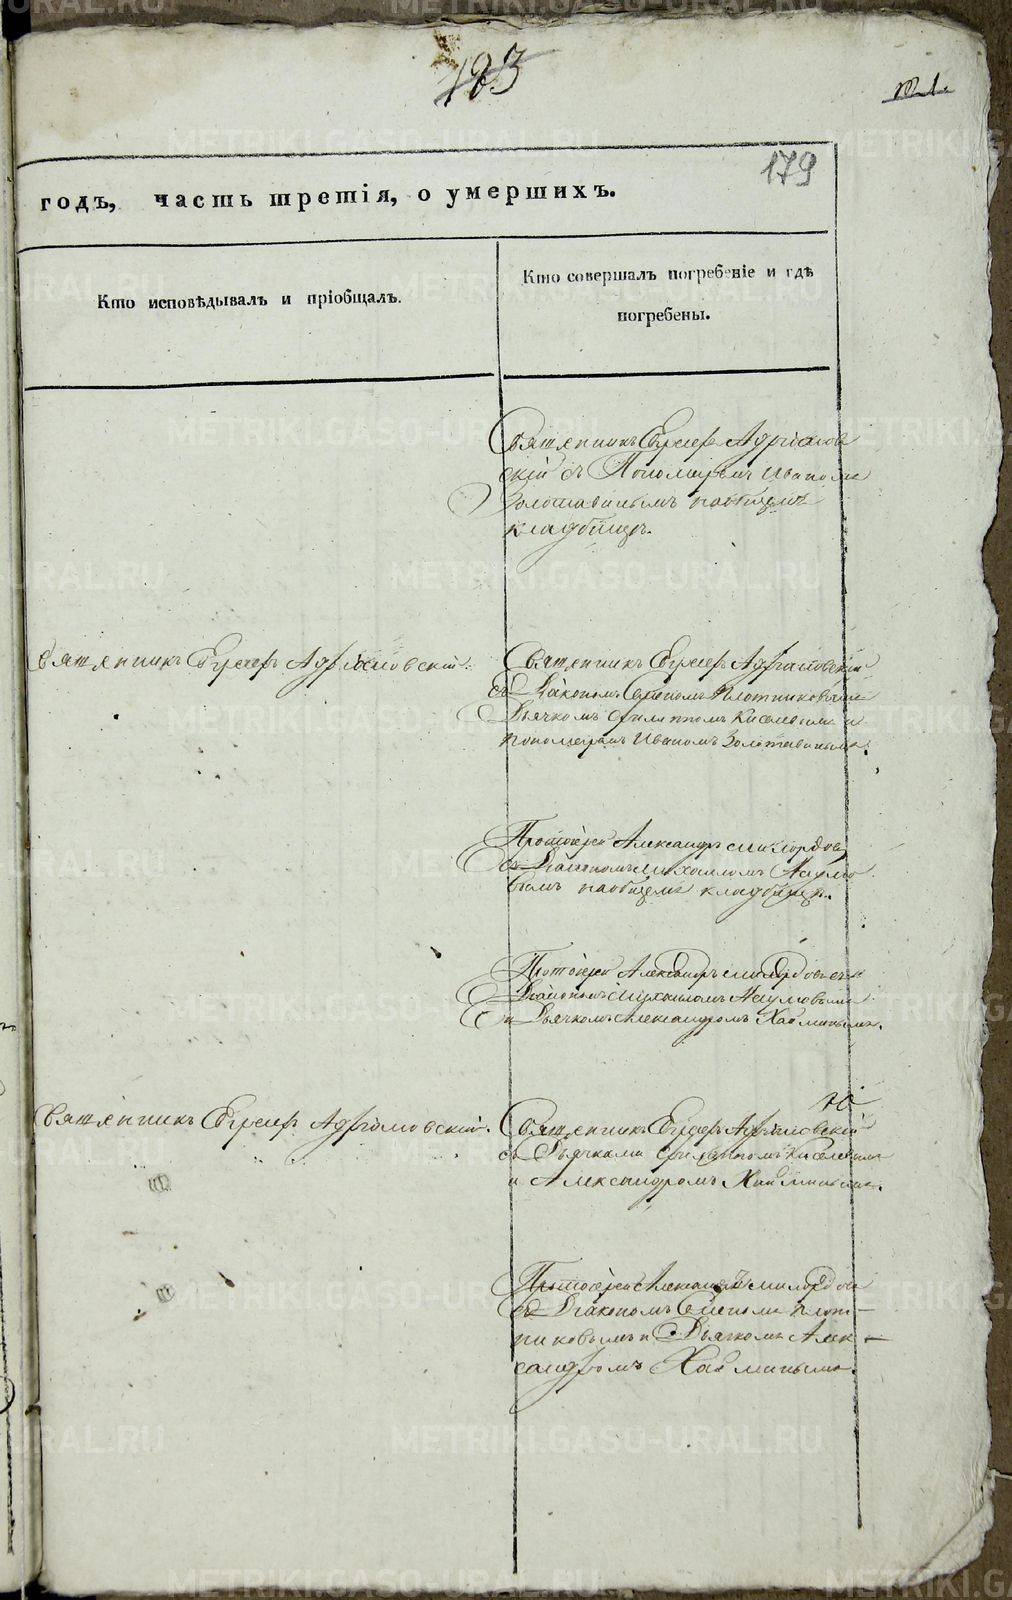 183
179
годъ, часть третія, о умершихъ.
Кто исповѣдывалъ и пріобщалъ.
Кто совершалъ погребеніе и гдѣ
погребены.
Священникъ Адріанов
скій съ Пономаремъ Иваномъ
Золотавинымъ наобщемъ
кладбищѣ.
Священникъ Адріановскій.
Священникъ Адріановскій
съ Діакономъ Плотниковымъ
Дьячкомъ Филиппомъ Киселевымъ и
пономаремъ Иваномъ Золотавинымъ.
Протоіерей Александръ Милордовъ
съ Діакономъ Михаиломъ Наумо
вымъ наобщемъ кладбищѣ.
Протоіерей Александръ Милордовъ съ
Діакономъ Михаиломъ Наумовымъ
и Дьячкомъ Александромъ Хавминымъ.
Священникъ Адріановскій.
Священникъ Адріановскій
съ Дьячками Филиппомъ Киселевымъ
и Александромъ Хавминымъ.
Протоіерей Александръ Милордовъ
съ Діакономъ Плот-
никовымъ и Дьячкомъ Алек-
сандромъ Хавминымъ.
METRIKI.GASO-URAL.RU